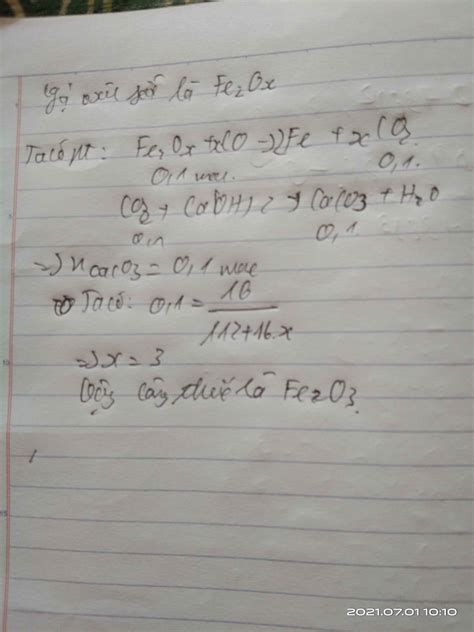 Gọi oxit sắt là Fe2Ox
Ta có pt: Fe2Ox + xCO → 2Fe + xCO2
0,1 mol 0,1.
CO2 + Ca(OH)2 → CaCO3 + H2O
0,1 0,1.
=> nCaCO3 = 0,1 mol
Ta có: 0,1 = 16
112+16.x
=> x = 3
Vậy công thức là Fe2O3
2021.07.01 10:10